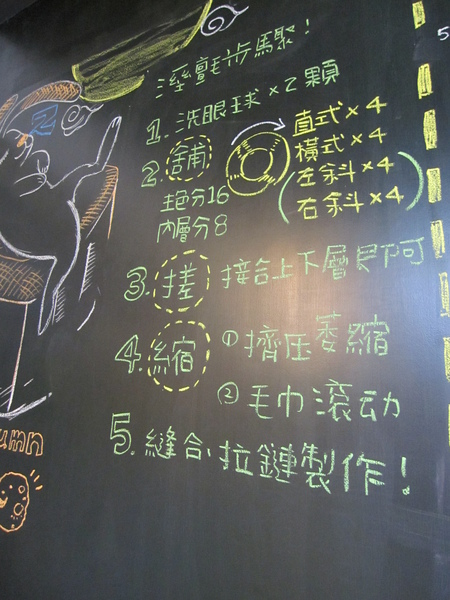 溼氈步馬聚!
1. 洗眼球×2顆
2. 鋪
主色分16
內層分8
直式×4
橫式×4
(左斜×4
右斜×4)
3. 搓 接合上下層即可
4. 縮 ①擠压萎縮
②毛巾滾动
5. 縫合、拉鏈製作!
umn